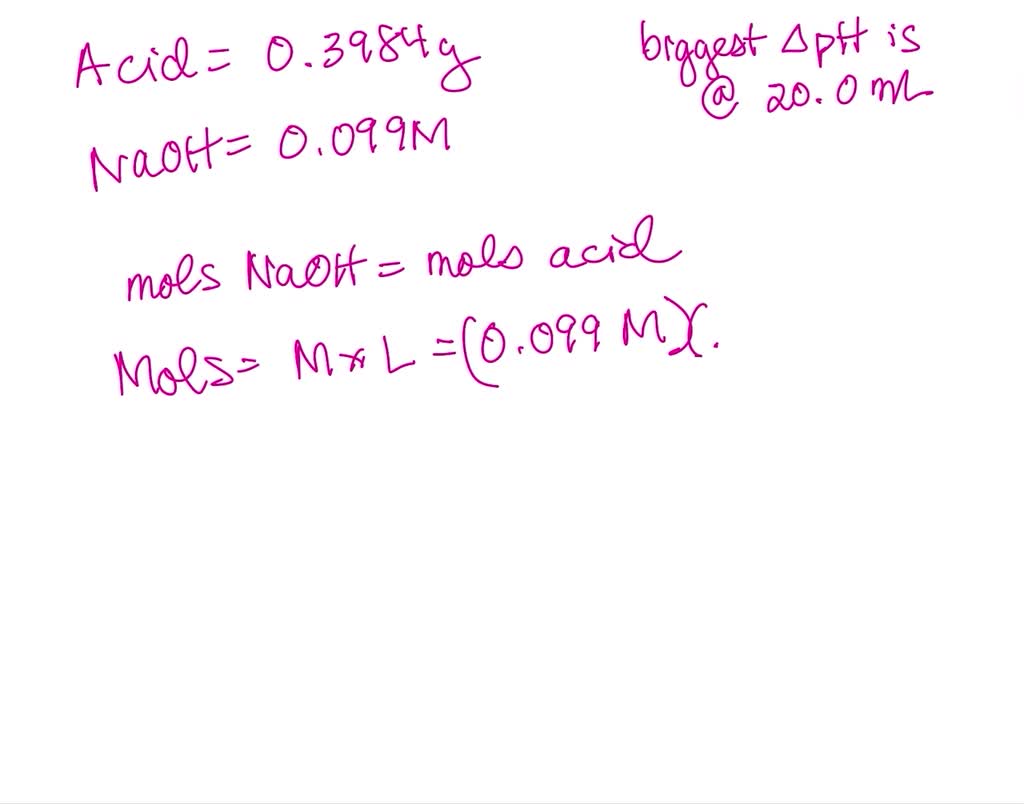 Acid = 0.3984g
biggest ΔpH is
@ 20.0 mL
NaOH = 0.099M
mols NaOH = mols acid
Mols = M * L = (0.099 M)(.